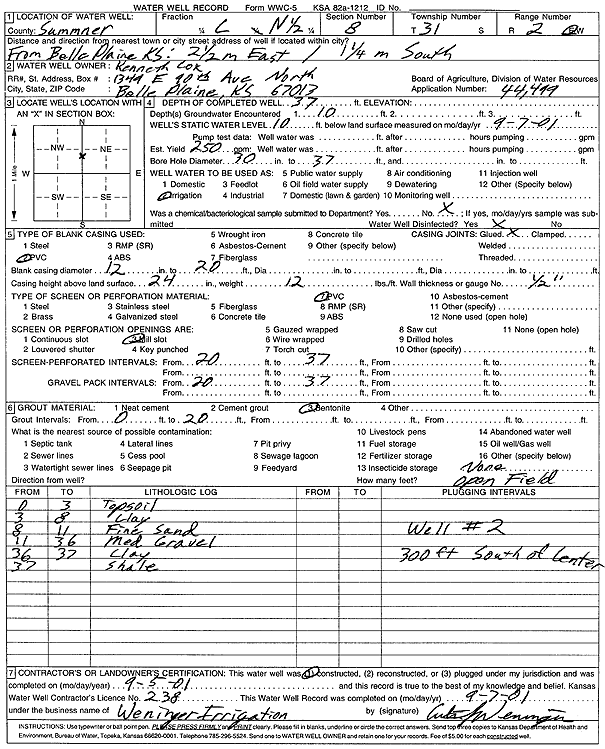 WATER WELL RECORD Form WWC-5 KSA 82a-1212 ID No.
1 LOCATION OF WATER WELL: Fraction Section Number Township Number Range Number
County: Sumnner ¼ C ¼ N½ ¼ 8 T 31 S R 2 E/W
Distance and direction from nearest town or city street address of well if located within city?
From Belle Plaine KS: 2½ m East / 1¼ m South
2 WATER WELL OWNER: Kenneth Cox
RR#, St. Address, Box # : 1349 E 90th Ave North Board of Agriculture, Division of Water Resources
City, State, ZIP Code : Belle Plaine, KS 67013 Application Number: 44,499
3 LOCATE WELL'S LOCATION WITH AN "X" IN SECTION BOX:
N
NW NE
W E
SW SE
S
1 Mile
4 DEPTH OF COMPLETED WELL 37 ft. ELEVATION:
Depth(s) Groundwater Encountered 1. 10 ft. 2. ft. 3. ft.
WELL'S STATIC WATER LEVEL 10 ft. below land surface measured on mo/day/yr 9-7-01
Pump test data: Well water was ft. after hours pumping gpm
Est. Yield 250 gpm: Well water was ft. after hours pumping gpm
Bore Hole Diameter 30 in. to 37 ft., and in. to ft.
WELL WATER TO BE USED AS: 5 Public water supply 8 Air conditioning 11 Injection well
1 Domestic 3 Feedlot 6 Oil field water supply 9 Dewatering 12 Other (Specify below)
2 Irrigation 4 Industrial 7 Domestic (lawn & garden) 10 Monitoring well
Was a chemical/bacteriological sample submitted to Department? Yes No X ; If yes, mo/day/yrs sample was submitted Water Well Disinfected? Yes X No
5 TYPE OF BLANK CASING USED: 5 Wrought iron 8 Concrete tile CASING JOINTS: Glued X Clamped
1 Steel 3 RMP (SR) 6 Asbestos-Cement 9 Other (specify below) Welded
2 PVC 4 ABS 7 Fiberglass Threaded
Blank casing diameter 12 in. to 20 ft., Dia in. to ft., Dia in. to ft.
Casing height above land surface 24 in., weight 12 lbs./ft. Wall thickness or gauge No. ½"
TYPE OF SCREEN OR PERFORATION MATERIAL: 7 PVC 10 Asbestos-cement
1 Steel 3 Stainless steel 5 Fiberglass 8 RMP (SR) 11 Other (specify)
2 Brass 4 Galvanized steel 6 Concrete tile 9 ABS 12 None used (open hole)
SCREEN OR PERFORATION OPENINGS ARE: 5 Gauzed wrapped 8 Saw cut 11 None (open hole)
1 Continuous slot 3 Mill slot 6 Wire wrapped 9 Drilled holes
2 Louvered shutter 4 Key punched 7 Torch cut 10 Other (specify) ft.
SCREEN-PERFORATED INTERVALS: From 20 ft. to 37 ft., From ft. to ft.
From ft. to ft., From ft. to ft.
GRAVEL PACK INTERVALS: From 20 ft. to 37 ft., From ft. to ft.
From ft. to ft., From ft. to ft.
6 GROUT MATERIAL: 1 Neat cement 2 Cement grout 3 Bentonite 4 Other
Grout Intervals: From 0 ft. to 20 ft., From ft. to ft., From ft. to ft.
What is the nearest source of possible contamination: 10 Livestock pens 14 Abandoned water well
1 Septic tank 4 Lateral lines 7 Pit privy 11 Fuel storage 15 Oil well/Gas well
2 Sewer lines 5 Cess pool 8 Sewage lagoon 12 Fertilizer storage 16 Other (specify below)
3 Watertight sewer lines 6 Seepage pit 9 Feedyard 13 Insecticide storage None
Direction from well? How many feet? open Field
FROM TO LITHOLOGIC LOG FROM TO PLUGGING INTERVALS
0 3 Topsoil
3 8 Clay
8 11 Fine Sand Well #2
11 36 Med Gravel
36 37 Clay 300 ft South of Center
37 Shale
7 CONTRACTOR'S OR LANDOWNER'S CERTIFICATION: This water well was (1) constructed, (2) reconstructed, or (3) plugged under my jurisdiction and was
completed on (mo/day/year) 9-5-01 and this record is true to the best of my knowledge and belief. Kansas
Water Well Contractor's Licence No. 238 This Water Well Record was completed on (mo/day/yr) 9-7-01
under the business name of Weninger Irrigation by (signature)
INSTRUCTIONS: Use typewriter or ball point pen. PLEASE PRESS FIRMLY and PRINT clearly. Please fill in blanks, underline or circle the correct answers. Send top three copies to Kansas Department of Health and
Environment, Bureau of Water, Topeka, Kansas 66620-0001. Telephone 785-296-5524. Send one to WATER WELL OWNER and retain one for your records. Fee of $5.00 for each constructed well.